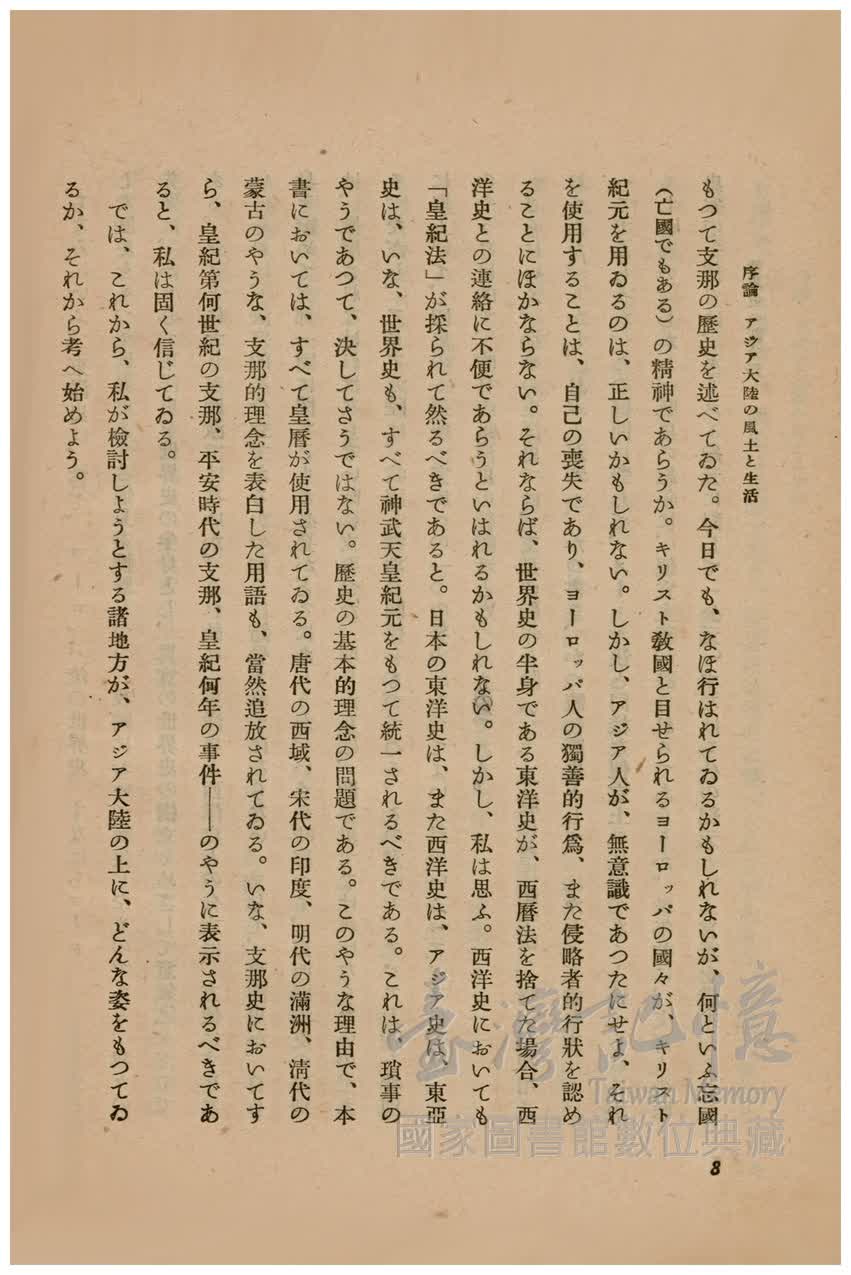 序論　アジア大陸の風土と生活
もつて支那の歴史を述べてゐた。今日でも、なほ行はれてゐるかもしれないが、何といふ忘國
（亡國でもある）の精神であらうか。キリスト敎國と目せられるヨーロッパの國々が、キリスト
紀元を用ゐるのは、正しいかもしれない。しかし、アジア人が、無意識であつたにせよ、それ
を使用することは、自己の喪失であり、ヨーロッパ人の獨善的行爲、また侵略者的行狀を認め
ることにほかならない。それならば、世界史の半身である東洋史が、西曆法を捨てた場合、西
洋史との連絡に不便であらうといはれるかもしれない。しかし、私は思ふ。西洋史においても
「皇紀法」が採られて然るべきであると。日本の東洋史は、また西洋史は、アジア史は、東亞
史は、いな、世界史も、すべて神武天皇紀元をもつて統一されるべきである。これは、瑣事の
やうであつて、決してさうではない。歷史の基本的理念の問題である。このやうな理由で、本
書においては、すべて皇曆が使用されてゐる。唐代の西域、宋代の印度、明代の滿洲、淸代の
蒙古のやうな、支那的理念を表白した用語も、當然追放されてゐる。いな、支那史においてす
ら、皇紀第何世紀の支那、平安時代の支那、皇紀何年の事件――のやうに表示されるべきであ
ると、私は固く信じてゐる。
では、これから、私が檢討しようとする諸地方が、アジア大陸の上に、どんな姿をもつてゐ
るか、それから考へ始めよう。
8
臺灣記憶
Taiwan Memory
國家圖書館數位典藏